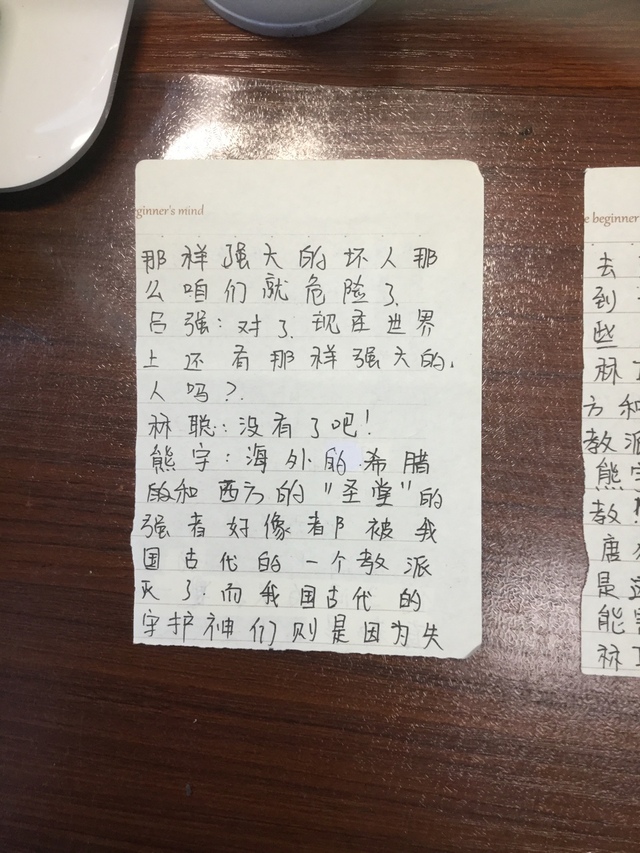 ginner's mind
那祥强大的坏人那
么咱们就危险了.
吕强:对了.现在世界
上还有那祥强大的.
人吗?.
林聪:没有了吧!
熊宇:海外的希腊
的和西方的“圣堂”的
强者好像都被我
国古代的一个教派
灭了.而我国古代的
守护神们则是因为失
e beginner
去
到
些
林
方和
教派
熊宇
教
唐
是这
能
林